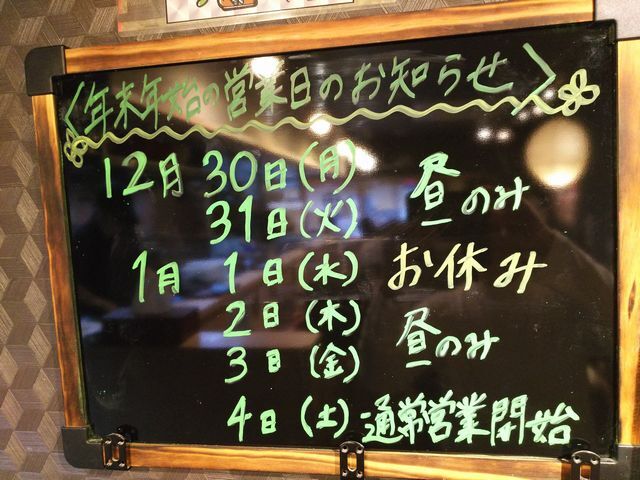 〈年末年始の営業日のお知らせ〉
12月 30日(月) 昼のみ
31日(火)
1月 1日(水) お休み
2日(木) 昼のみ
3日(金)
4日(土) 通常営業開始